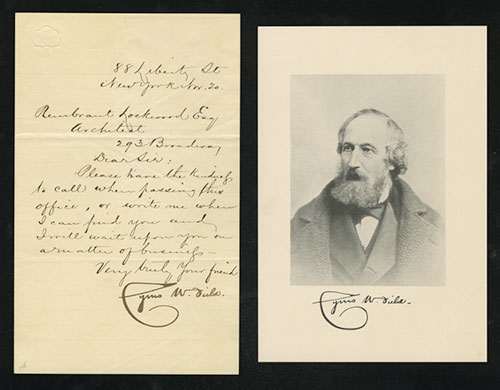 88 Liberty St
New York Nov. 20.
Rembrant Lockwood Esq
Architect
293 Broadway
Dear Sir;
Please have the kindness
to call when passing this
office, or write me when
I can find you and
I will wait upon you on
a matter of business—
Very truly Your friend
Cyrus W. Field.
Cyrus W. Field.